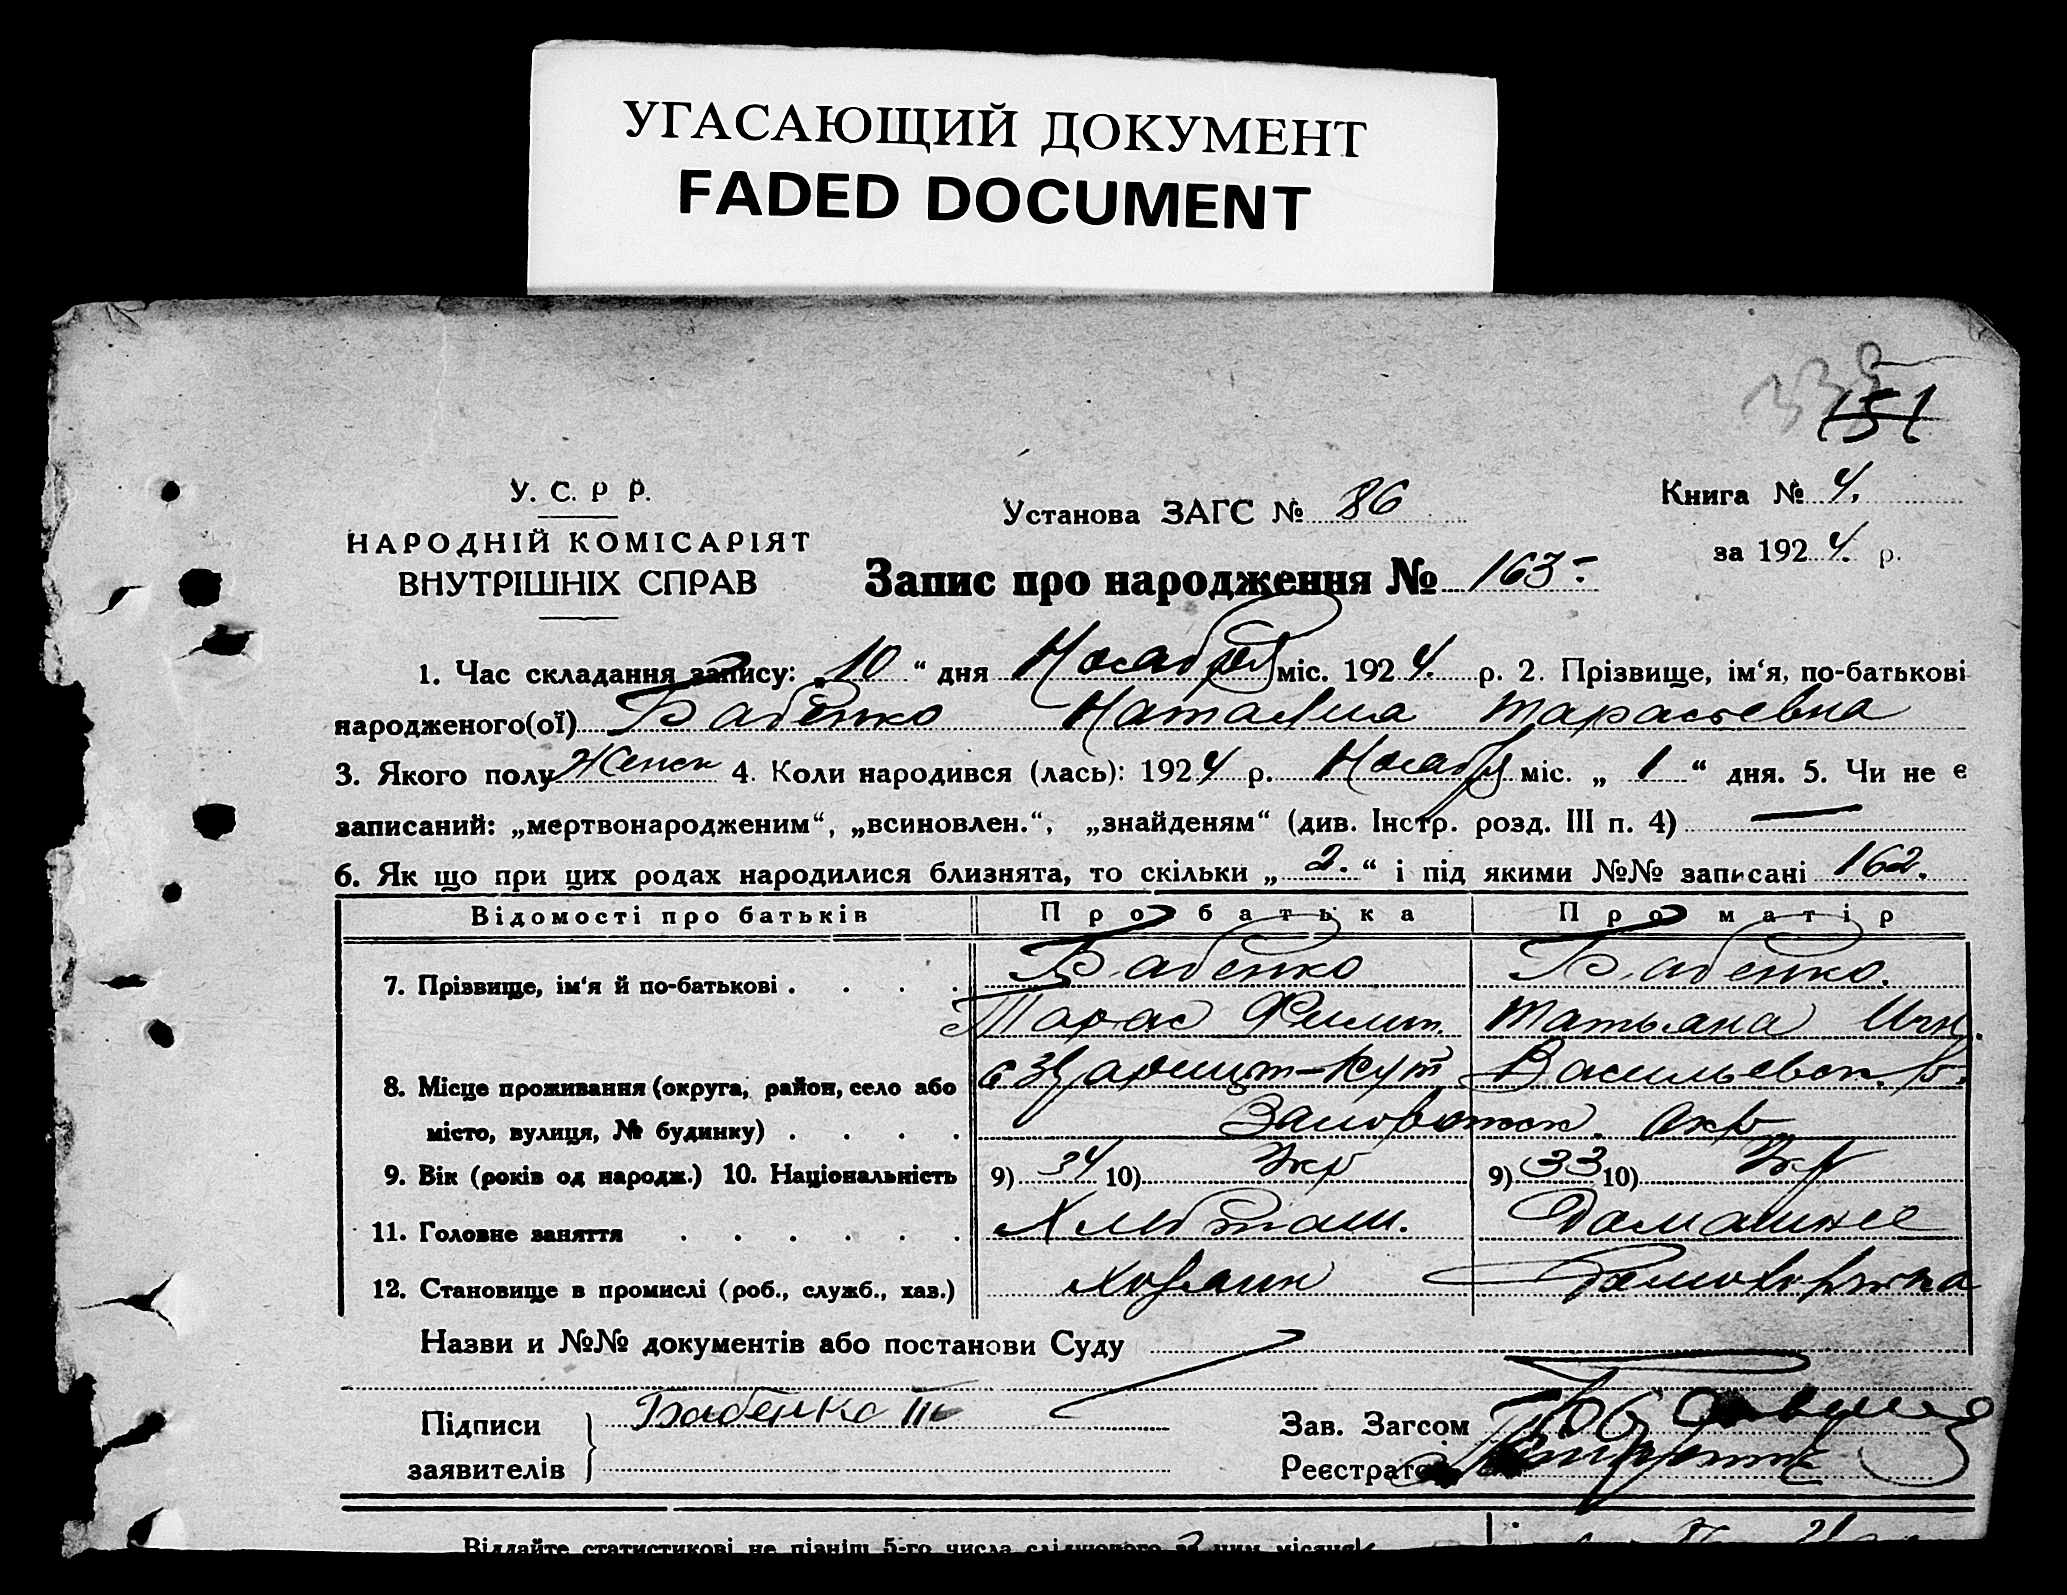 УГАСАЮЩИЙ ДОКУМЕНТ
FADED DOCUMENT
151
У. С. Р Р.
НАРОДНІЙ КОМІСАРІЯТ
ВНУТРІШНІХ СПРАВ
Установа ЗАГС № 86
Книга № 4.
за 1924. р.
Запис про народження № 163-.
1. Час складання запису: „10“ дня Ноября міс. 1924. р. 2. Прізвище, ім‘я, по-батькові
народженого(ої) Бабенко Наталия Тарасьевна
3. Якого полу Женск 4. Коли народився (лась): 1924 р. Ноября міс. „1“ дня. 5. Чи не є
записаний: „мертвонародженим“, „всиновлен.“, „знайденям“ (див. Інстр. розд. III п. 4) —
6. Як що при цих родах народилися близнята, то скільки „2.“ і під якими №№ записані 162.
Відомості про батьків Про батька Про матір
7. Прізвище, ім‘я й по-батькові . . . . Бабенко Бабенко.
Тарас Филип. Татьяна
8. Місце проживання (округа, район, село або Васильевск. р.
місто, вулиця, № будинку) . . . . Запорожск. Окр
9. Вік (років од народж.) 10. Національність 9) 34 10) Укр 9) 33 10) Укр
11. Головне заняття . . . . . . Хлебопаш. Домашнее
12. Становище в промислі (роб., служб., хаз.) Хозяин Домохозяйка
Назви и №№ документів або постанови Суду
Підписи заявителів } Бабенко Т
Зав. Загсом
Реєстратор
Віддайте статистикові не пізніш 5-го числа слідуючого за цим місяця